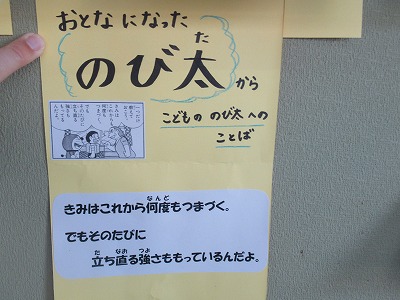 おとなになった
のび太から
こどもの のび太への
ことば
きみはこれから何度もつまづく。
でもそのたびに
立ち直る強さももっているんだよ。